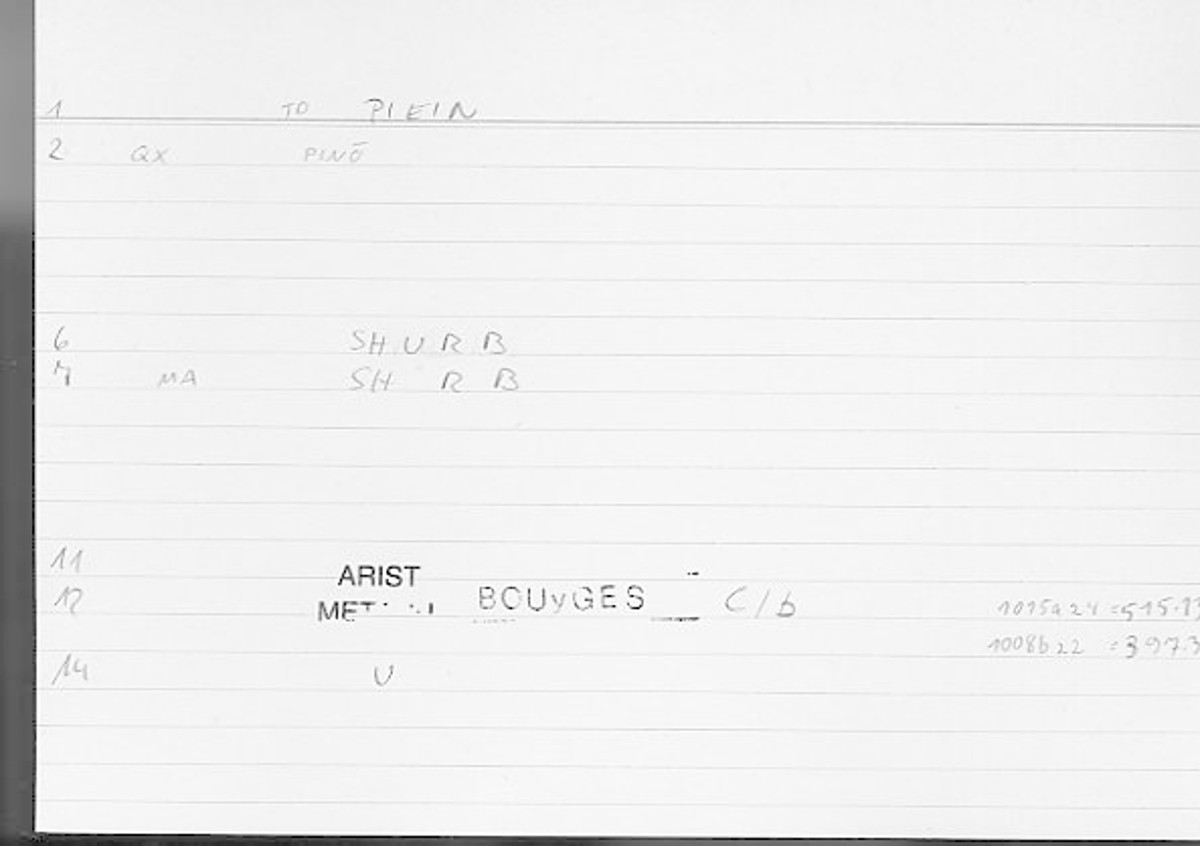 1 TO PLEIN
2 QX PINŌ
6 SH U R B
7 MA SH R B
11
12 ARIST
BOUyGES C/b 1015a24 =515.13
1008b22 =397.3
14 U